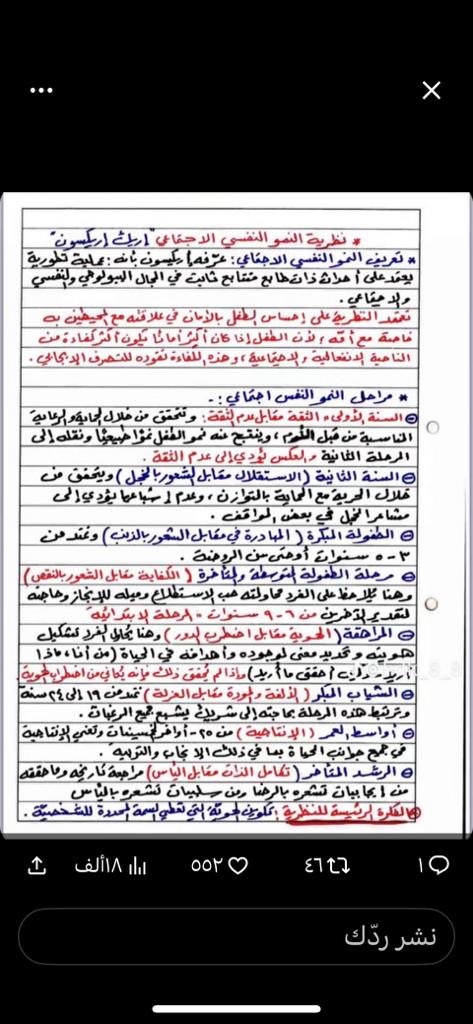 * نظرية النمو النفسي الاجتماعي "إريك إريكسون"
* تعريف النمو النفسي الاجتماعي: عرّفه إريكسون بأنه: عملية تطورية
يعتمد على أحداث ذات طابع متتابع ثابت في المجال البيولوجي والنفسي
والاجتماعي.
تعتمد النظرية على إحساس الطفل بالأمان في علاقته مع المحيطين به
خاصة مع أمه، لأن الطفل إذا كان أكثر أمانًا يكون أكثر كفاءة من
الناحية الانفعالية والاجتماعية، وهذه الكفاءة تقوده للتصرف الإيجابي.
* مراحل النمو النفس اجتماعي:-
السنة الأولى: الثقة مقابل عدم الثقة: وتتحقق من خلال الحماية والرعاية
المناسبة من قبل الأم، وينتج عنه نمو الطفل نموًا طبيعيًا ونقله إلى
المرحلة الثانية والعكس يؤدي إلى عدم الثقة.
السنة الثانية (الاستقلال مقابل الشعور بالخجل) ويتحقق من
خلال الحرية مع الحماية بالتوازن، وعدم إشباعها يؤدي إلى
مشاعر الخجل في بعض المواقف.
الطفولة المبكرة (المبادرة في مقابل الشعور بالذنب) وتمتد من
٣-٥ سنوات أو حتى سن الروضة.
مرحلة الطفولة المتوسطة والمتأخرة (الكفاية مقابل الشعور بالنقص)
وهنا يُلاحظ على الفرد محاولته حب الاستطلاع وميله للإنجاز وحاجته
لتقدير الآخرين من ٦-٩ سنوات - المرحلة الابتدائية
المراهقة (الهوية مقابل اضطراب الدور) وهنا يحاول الفرد تشكيل
هويته وتحديد معنى لوجوده وأهدافه في الحياة (من أنا، ماذا
أريد، كيف أحقق ما أريد) وإذا لم يحقق ذلك فإنه يعاني من اضطراب الهوية.
الشباب المبكر (الألفة والمودة مقابل العزلة) تمتد من ١٩ إلى ٢٤ سنة
وترتبط هذه المرحلة بحاجته إلى شريك يشبع جميع الرغبات.
أواسط العمر (الإنتاجية) من ٢٥- أواخر الخمسينات وتعني الإنتاجية
في جميع جوانب الحياة بما في ذلك الإنجاب والتربية.
الرشد المتأخر (تكامل الذات مقابل اليأس) مراجعة تاريخه وما حققه
من إيجابيات تشعره بالرضا ومن سلبيات تشعره باليأس
الفكرة الرئيسة للنظرية: تكوين الهوية التي تعطي السمة المحددة للشخصية.
١ ٤٦ ٥٥٢ ١٨ألف
نشر ردّك